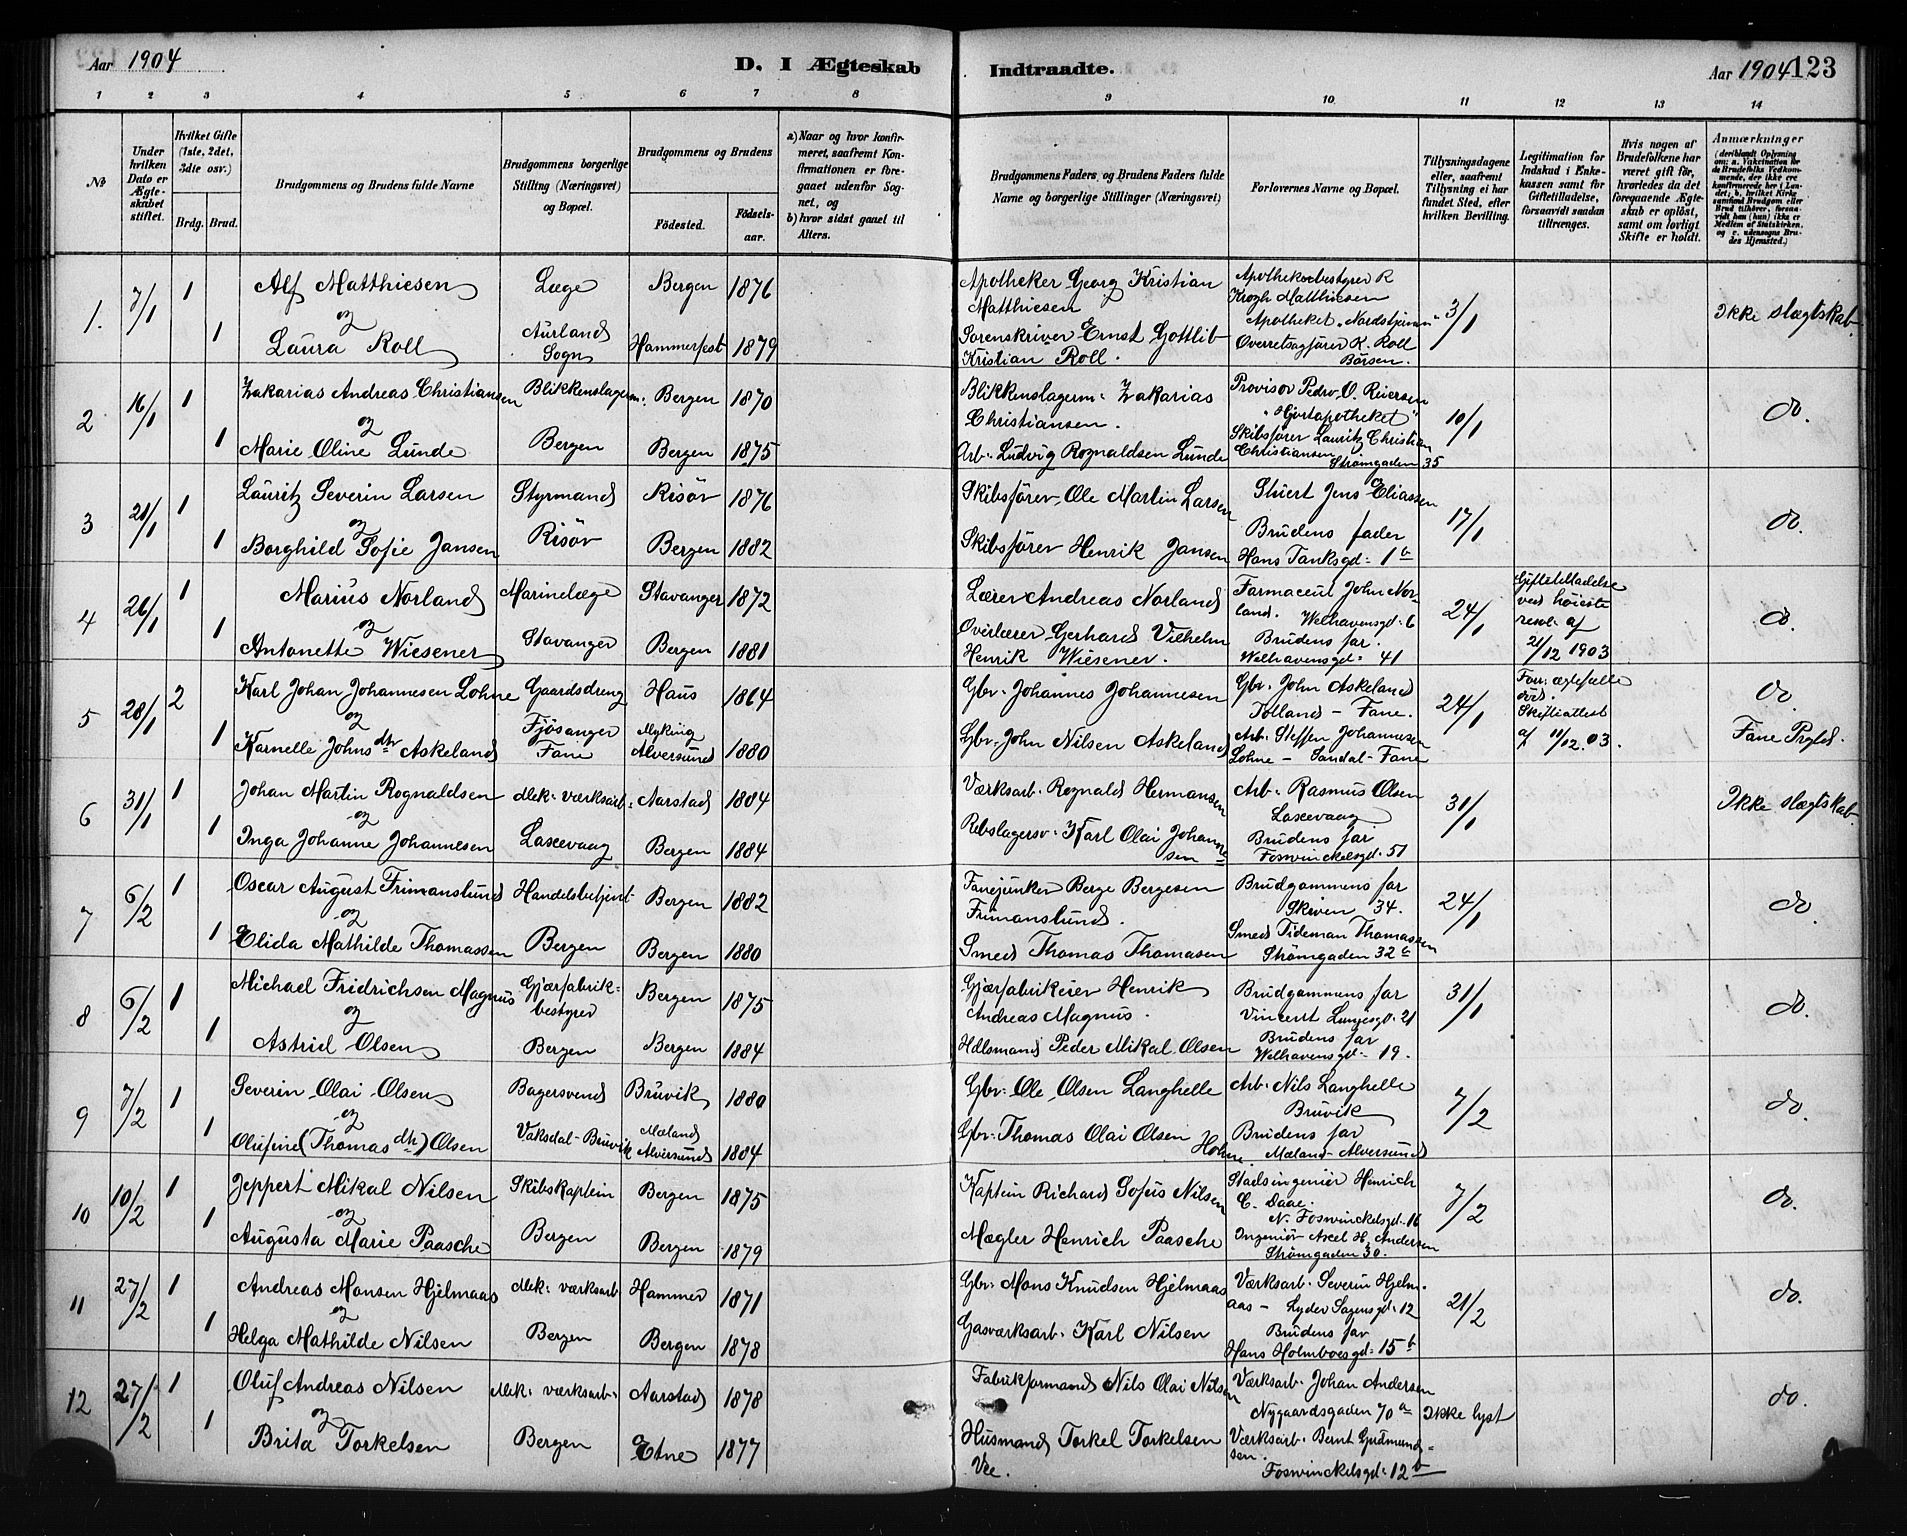 Aar 1904
D. I Ægteskab
Indtraadte.
Aar 1904 123
1 2 3 4 5 6 7 8 9 10 11 12 13 14
№
Under hvilken Dato er Ægteskabet stiftet.
Hvilket Gifte (1ste, 2det, 3die osv.)
Brdg. Brud.
Brudgommens og Brudens fulde Navne
Brudgommens borgerlige Stilling (Næringsvei) og Bopæl.
Brudgommens og Brudens
Födested.
Födselsaar.
a) Naar og hvor konfirmeret, saafremt Konfirmationen er foregaaet udenför Sognet, og
b) hvor sidst ganet til Alters.
Brudgommens Faders, og Brudens Faders fulde Navne og borgerlige Stillinger (Næringsvei)
Forlovernes Navne og Bopæl.
Tillysningsdagene eller, saafremt Tillysning ei har fundet Sted, efter hvilken Bevilling.
Legitimation for Indskud i Enkekassen samt for Giftetilladelse, forsaavidt saadan tiltrænges.
Hvis nogen af Brudefolkene har været gift för, hvorledes da det foregaaende Ægteskab er oplöst, samt om lovligt Skifte er holdt.
Anmærkninger
1. 7/1 1 Alf Matthiesen Læge Bergen 1876
og
1 Laura Roll Aurland Sogn Hammerfest 1879
Apotheker Georg Kristian Matthiesen
Sorenskriver Ernst Gottlib Kristian Roll.
Apothekerbestyrer R Krogh Matthiesen
Apotheket "Nordstjernen"
Overretsagfører K. Roll
Børsen.
3/1
Ikke slægtskab.
2 16/1 1 Zakarias Andreas Christiansen Blikkenslagerm. Bergen 1870
og
1 Marie Oline Lunde Bergen Bergen 1875
Blikkenslagerm. Zakarias Christiansen.
Arb. Ludvig Rognaldsen Lunde
Provisor Pedro O. Reiersen
"Hjortapotheket"
Skibsfører Lauritz Christian Christiansen
Strømgaden 35
10/1
do.
3 21/1 1 Lauritz Severin Larsen Styrmand Risör 1876
og
1 Borghild Sofie Jansen Risör Bergen 1882
Skibsfører Ole Martin Larsen
Skibsfører Henrik Jansen
Stuert Jens Eliassen
Brudens fader
Hans Tanksgd. 1 b
17/1
do.
4 26/1 1 Marius Norland Marinelæge Stavanger 1872
og
1 Antonette Wiesener Stavanger Bergen 1881
Lærer Andreas Norland
Overlærer Gerhard Vilhelm Henrik Wiesener.
Farmaceut John Norland. Welhavensgd. 6
Brudens far
Welhavensgd. 41
24/1
Giftetilladelse ved höieste resol. af 21/12 1903
do.
5 28/1 2 Karl Johan Johannesen Lohne Gaardsdreng Haus 1864
og
1 Karnelle Johnsdtr Askeland Fjösanger Fane Myking Alversund 1880
Gbr. Johannes Johannesen
Gbr. John Nilsen Askeland
Gbr. John Askeland
Tolland - Fane.
Arb. Steffen Johannesen Lohne - Sandal - Fane
24/1
Forr. ægtefælle död.
Skifteattest af 11/12. 03.
do.
Fane Prgld.
6 31/1 1 Johan Martin Rognaldsen Mek. værksarb. Aarstad 1884
og
1 Inga Johanne Johannesen Laxevaag Bergen 1884
Værksarb. Rognald Hermansen
Rebslagersv. Karl Olai Johannesen
Arb. Rasmus Olsen
Laxevaag
Brudens far
Foswinckelsgd. 51
31/1
Ikke slægtskab.
7 6/2 1 Oscar August Frimanslund Handelsbetjent Bergen 1882
og
1 Elida Mathilde Thomassen Bergen Bergen 1880
Fanejunker Berge Bergesen Frimanslund.
Smed Thomas Thomasen
Brudgommens far
Skiven 34.
Smed Tideman Thomassen
Strømgaden 32 c
24/1
do.
8 6/2 1 Michael Fridrichsen Magnus Gjærfabrikbestyrer Bergen 1875
og
1 Astrid Olsen Bergen Bergen 1884
Gjærfabrikeier Henrik Andreas Magnus.
Hdlsmand Peder Mikal Olsen
Brudgommens far
Vincent Lungesgd. 21
Brudens far
Welhavensgd. 19.
31/1
do.
9 7/2 1 Severin Olai Olsen Bagersvend Bruvik 1880
og
1 Olufine (Thomasdtr) Olsen Vaksdal - Bruvik Mæland Alversund 1884
Gbr. Ole Olsen Langhelle
Gbr. Thomas Olai Olsen Holme.
Arb. Nils Langhelle
Bruvik
Brudens far
Mæland - Alversund
7/2
do.
10 10/2 1 Jeppert Mikal Nilsen Skibskaptein Bergen 1875
og
1 Augusta Marie Paasche Bergen Bergen 1879
Kaptein Richard Sofus Nilsen
Mægler Henrich Paasche
Stadsingeniör Henrich C. Daae
N. Foswinckelsgd. 16
Ingeniör Axel H. Andersen
Strömgaden 30.
7/2
do.
11 27/2 1 Andreas Monsen Hjelmaas Mek. værksarb Hammer 1871
og
1 Helga Mathilde Nilsen Bergen Bergen 1878
Gbr. Mons Knudsen Hjelmaas
Gasværksarb. Karl Nilsen
Værksarb. Severin Hjelmaas - Lyder Sagensgd. 12
Brudens far
Hans Holmboesgd. 15 b
21/2
do.
12 27/2 1 Oluf Andreas Nilsen Mek. værksarb. Aarstad 1878
og
1 Brita Torkelsen Bergen Etne 1877
Fabrikformand Nils Olai Nilsen
Husmand Torkel Torkelsen Vee.
Værksarb. Johan Andersen
Nygaardsgaden 70 a
Værksarb. Bernt Gudmundsen.
Foswinckelsgd. 12 b
Ikke lyst
do.